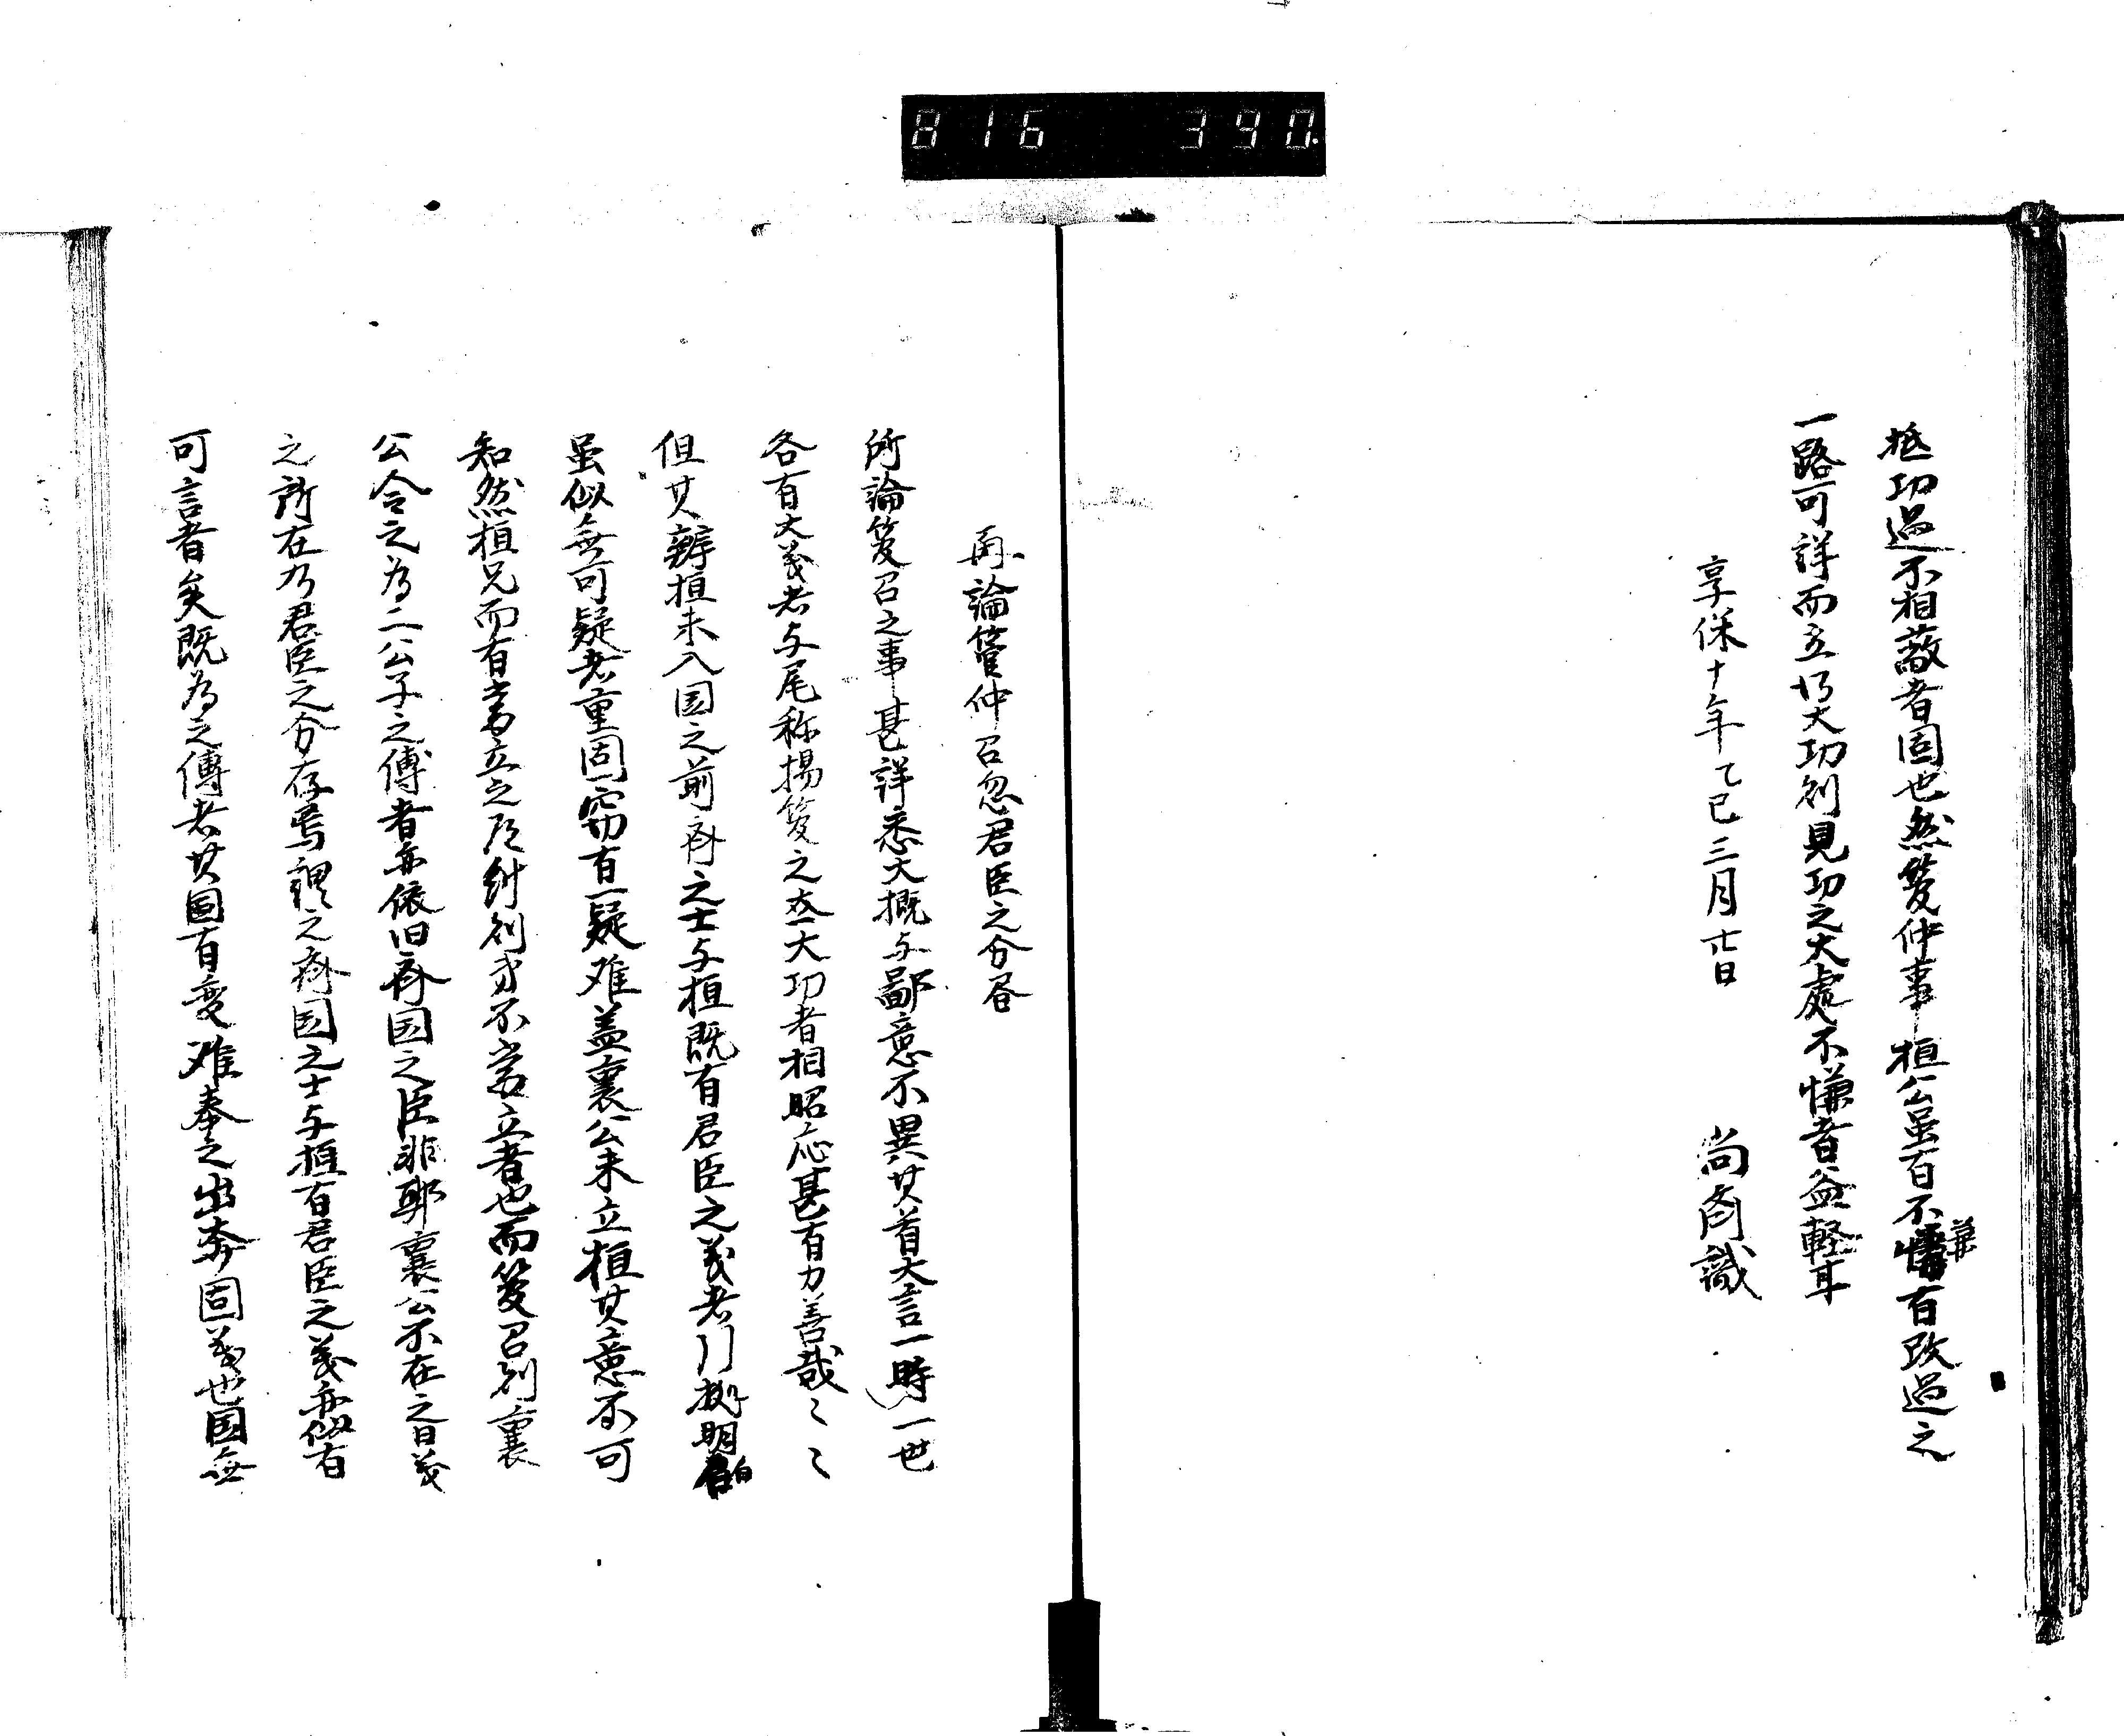 816 390.
抵功過不相蔽者固也然管仲事桓公虽有不慊有改過之
一路可詳而立乃大功則見功之大處不慊者益軽耳
享保十年乙巳三月廿日 尚斎識
再論管仲召忽君臣之分
所論管召之事甚詳悉大概与鄙意不異其首大言一時一世
各有大義者与尾称揚管之大功者相昭応甚有力善哉〻〻
但其辨桓未入国之前斉之士与桓既有君臣之義者 明白
虽似無可疑者重固窃有一疑难盖襄公未立桓其意不可
知然桓兄而有當立之 糾則弟不當立者也而管召則襄
公令之為二公子之傅者亦依旧斉国之臣非耶襄公不在之日義
之所在乃君臣之分存焉謂之斉国之士与桓有君臣之義亦似有
可言者矣既為之傅者其国有变难奉之出奔固義也国無